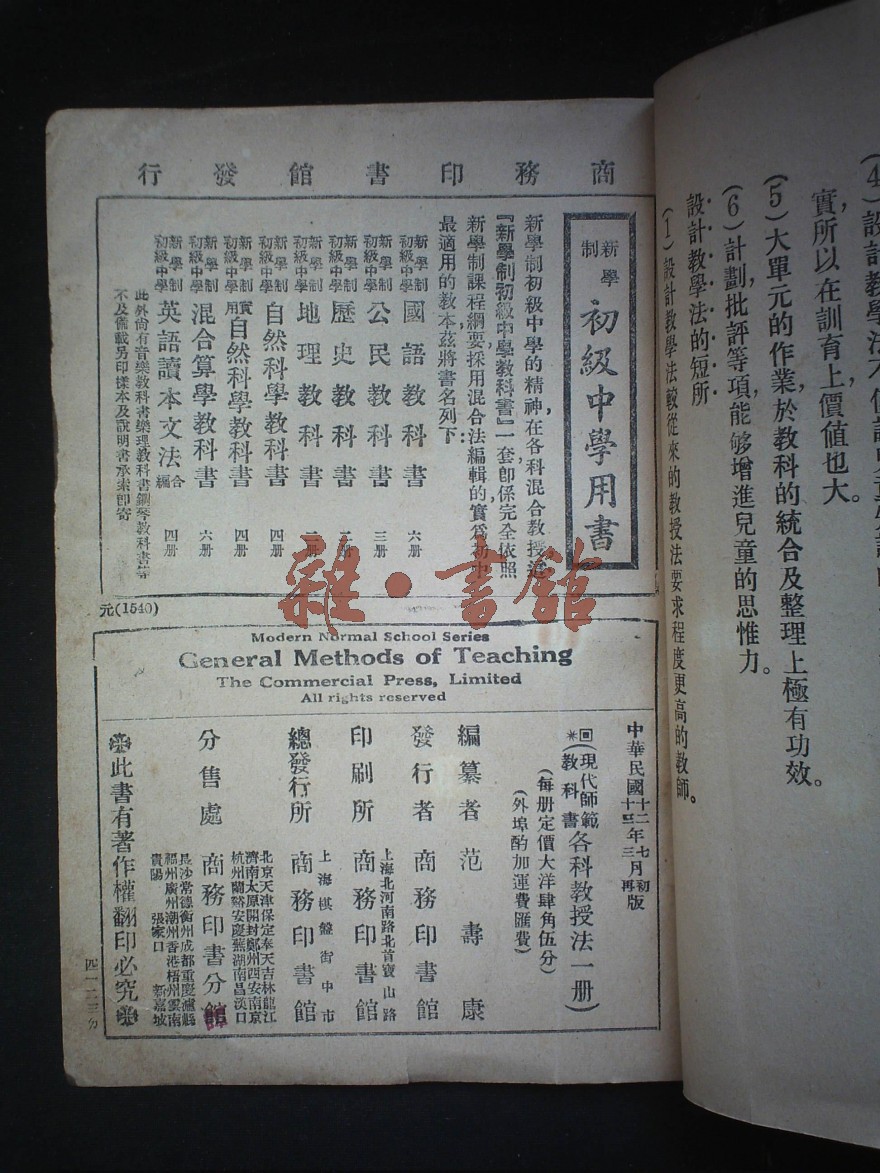 (4)設計教學法不但
實,所以在訓育上,價值也大。
(5)大單元的作業,於教科的統合及整理上極有功效。
(6)計劃,批評等項,能够增進兒童的思惟力。
設計教學法的短所
(1)設計教學法較從來的教授法要求程度更高的教師。
商務印書館發行
新學制
初級中學用書
新學制初級中學的精神,在各科混合教授
『新學制初級中學教科書』一套,卽係完全依照
新學制課程綱要,採用混合法編輯的,實爲初中
最適用的教本,茲將書名列下:
新學制初級中學 國語教科書 六册
新學制初級中學 公民教科書 三册
新學制初級中學 歷史教科書 二册
新學制初級中學 地理教科書 二册
新學制初級中學 自然科學教科書 四册
新學制初級中學 實用自然科學教科書 四册
新學制初級中學 混合算學教科書 六册
新學制初級中學 英語讀本文法合編 四册
此外尙有音樂教科書樂理教科書鋼琴教科書等
不及備載另印樣本及說明書承索卽寄
元(1540)
雜·書館
Modern Normal School Series
General Methods of Teaching
The Commercial Press, Limited
All rights reserved
中華民國十二年七月初版
中華民國十四年三月再版
回(現代師範教科書)各科教授法一册)
(每册定價大洋肆角伍分)
(外埠酌加運費匯費)
編纂者 范壽康
發行者 商務印書館
上海北河南路北首寶山路
印刷所 商務印書館
上海棋盤街中市
總發行所 商務印書館
北京天津保定奉天吉林龍江
濟南太原開封鄭州西安南京
杭州蘭谿安慶蕪湖南昌漢口
分售處 商務印書分館
長沙常德衡州成都重慶瀘縣
福州廣州潮州香港梧州雲南
貴陽 張家口 新嘉坡
此書有著作權翻印必究
四一二三份